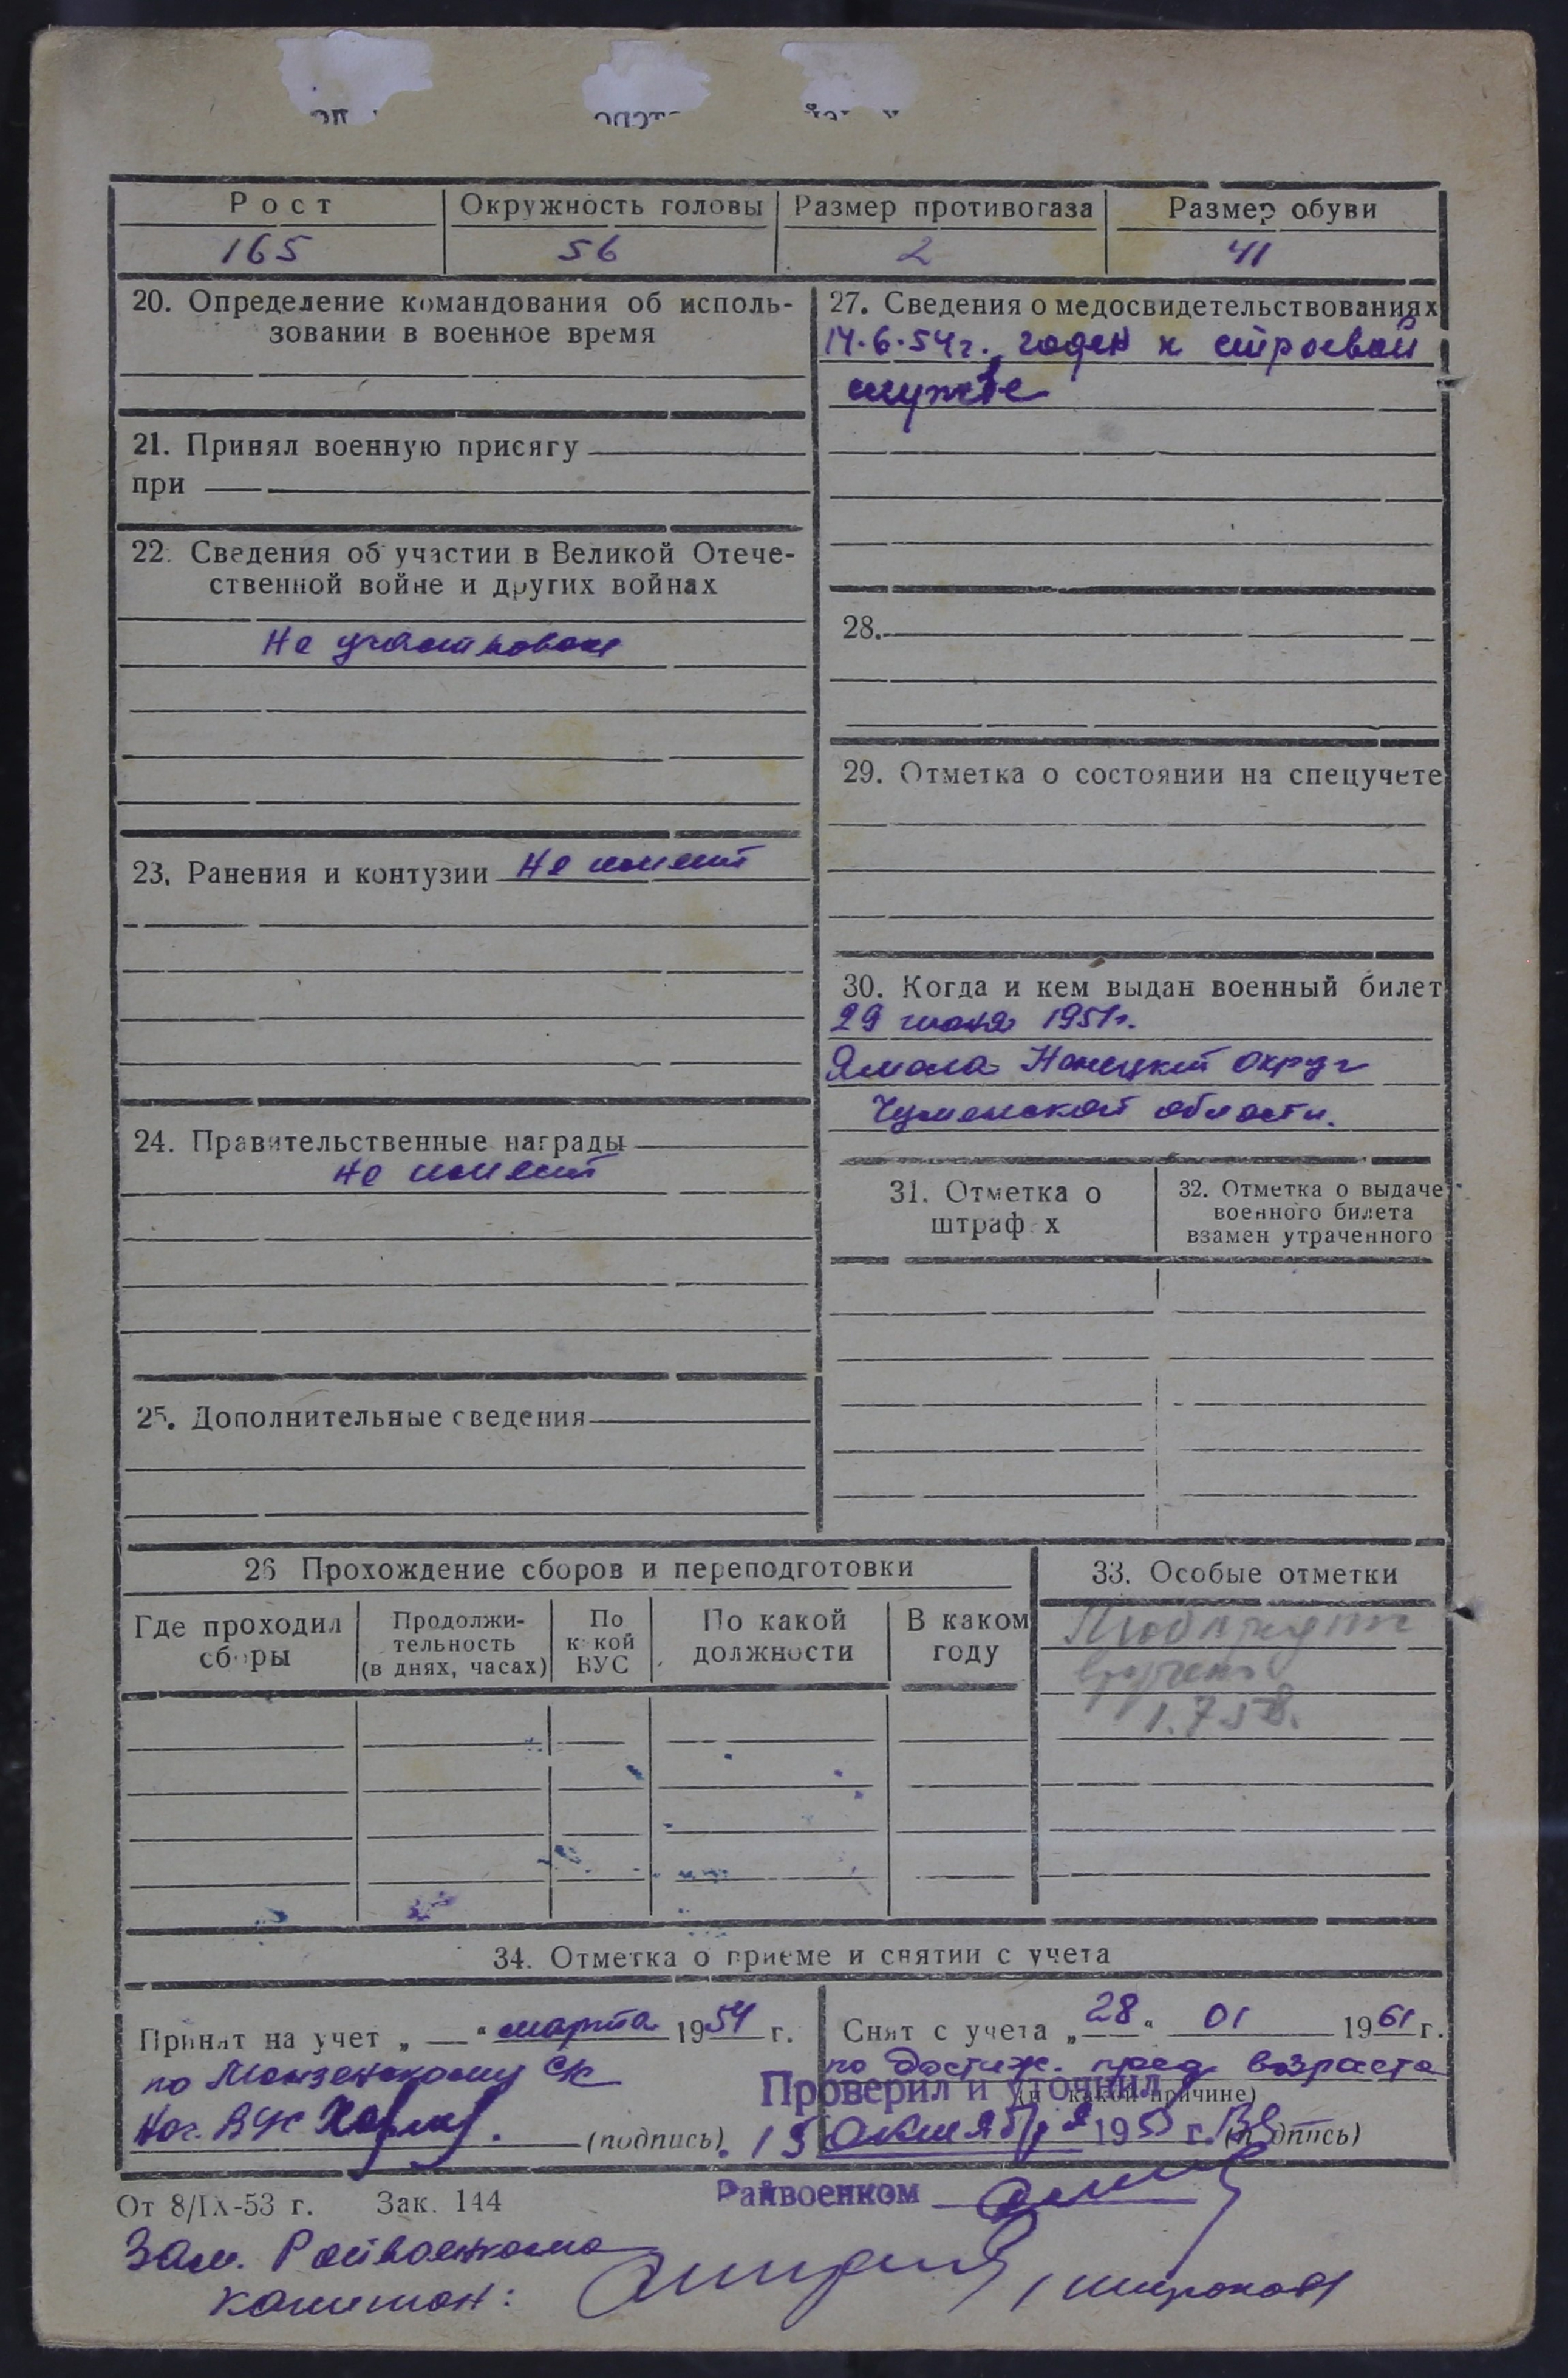 Рост
Окружность головы
Размер противогаза
Размер обуви
165
56
2
41
20. Определение командования об исполь-
зовании в военное время
21. Принял военную присягу
при
22. Сведения об участии в Великой Отече-
ственной войне и других войнах
Не участвовал
23. Ранения и контузии Не имеет
24. Правительственные награды
Не имеет
25. Дополнительные сведения
27. Сведения о медосвидетельствованиях
14.6.54г. годен к строевой
службе
28.
29. Отметка о состоянии на спецучете
30. Когда и кем выдан военный билет
29 1951г.
Ямала Ненецкий округ
Тюменской области.
31. Отметка о
штраф х
32. Отметка о выдаче
военного билета
взамен утраченного
26 Прохождение сборов и переподготовки
Где проходил
сборы
Продолжи-
тельность
(в днях, часах)
По
к кой
ВУС
По какой
должности
В каком
году
33. Особые отметки
Мобпредпис
вручено
1.7.58.
34. Отметка о приеме и снятии с учета
Принят на учет „ — " марта 1954 г.
по с/с
Нач. ВУС
(подпись)
Снят с учета „ 28 " 01 1961 г.
по достиж. пред. возраста
(п какой причине)
Проверил и уточнил
15 октября 195 г.
(п дпись)
Райвоенком
От 8/IX-53 г. Зак. 144
Зам. Райвоенкома
капитан: /Широков/